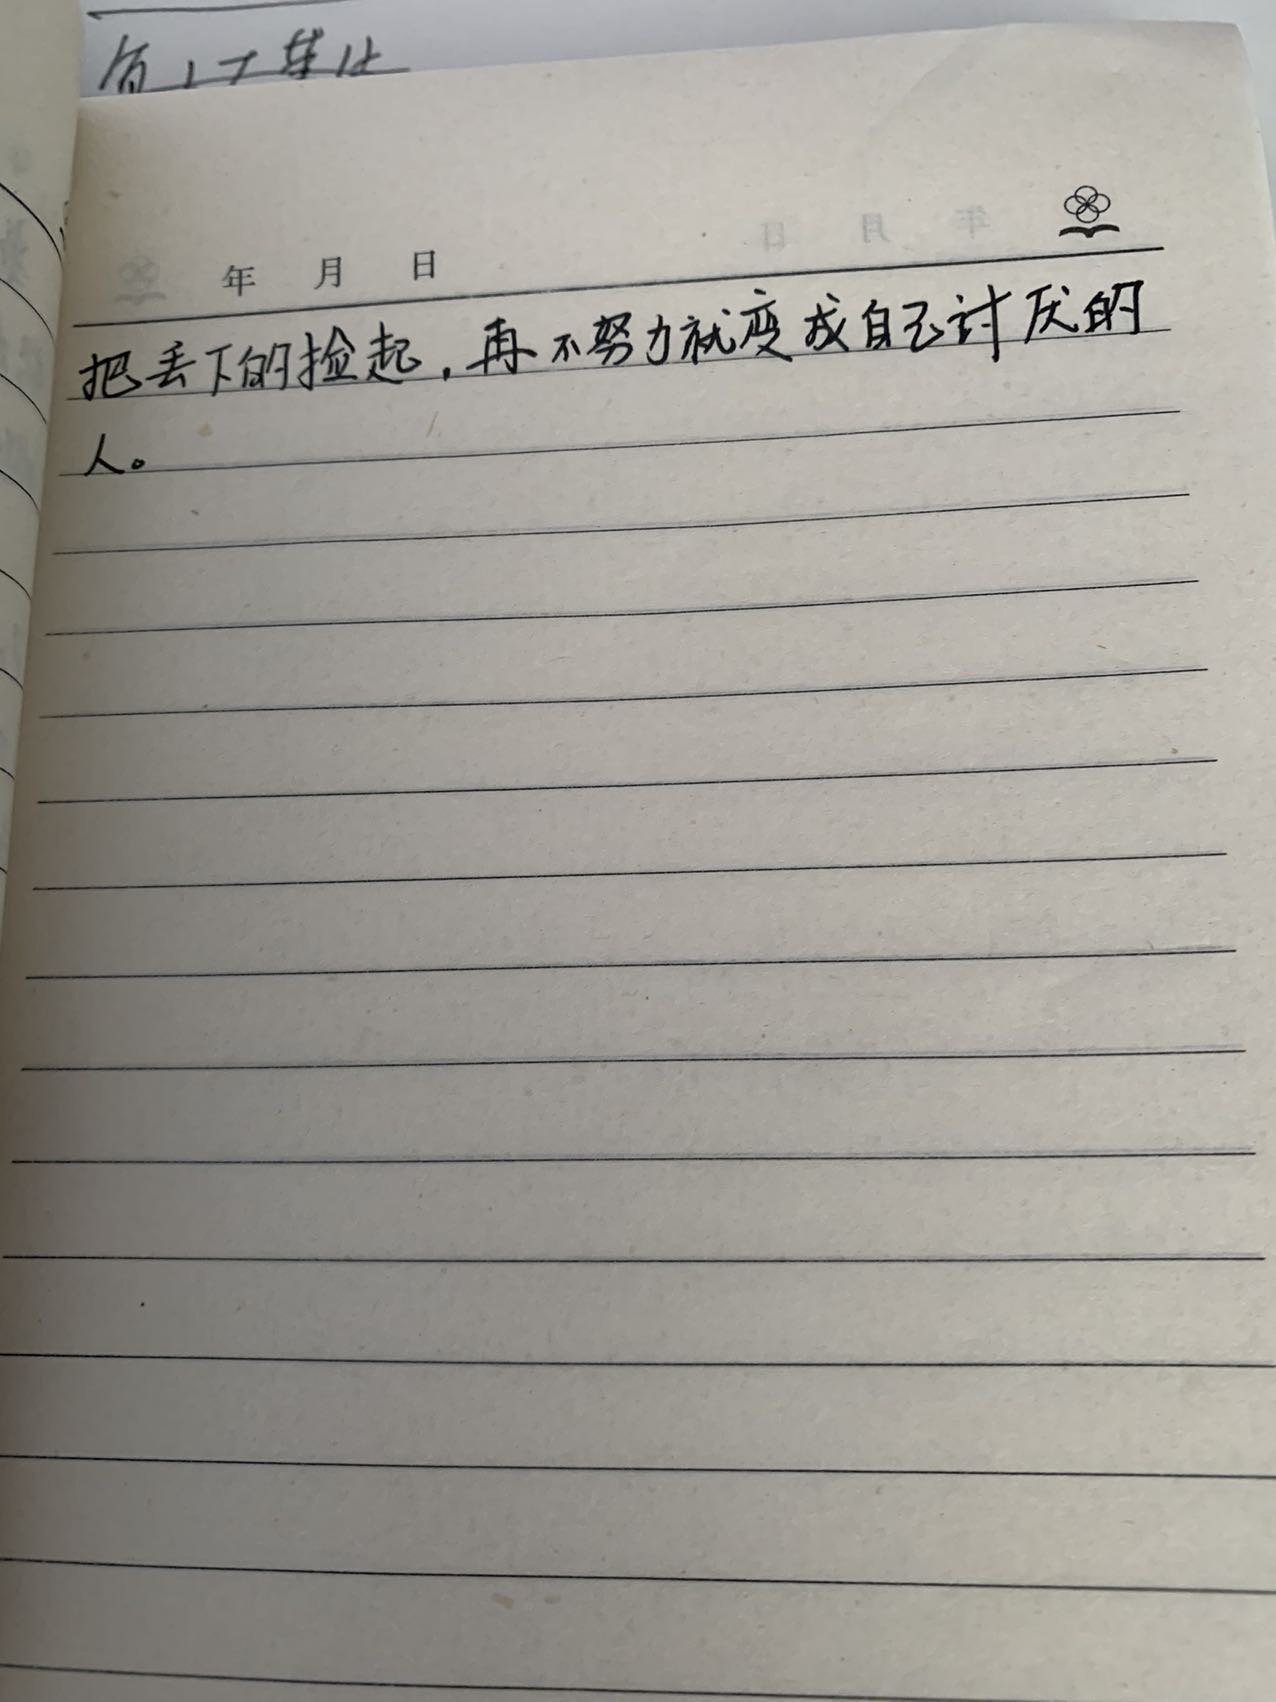 年 月 日
把丢下的捡起，再不努力就变成自己讨厌的
人。